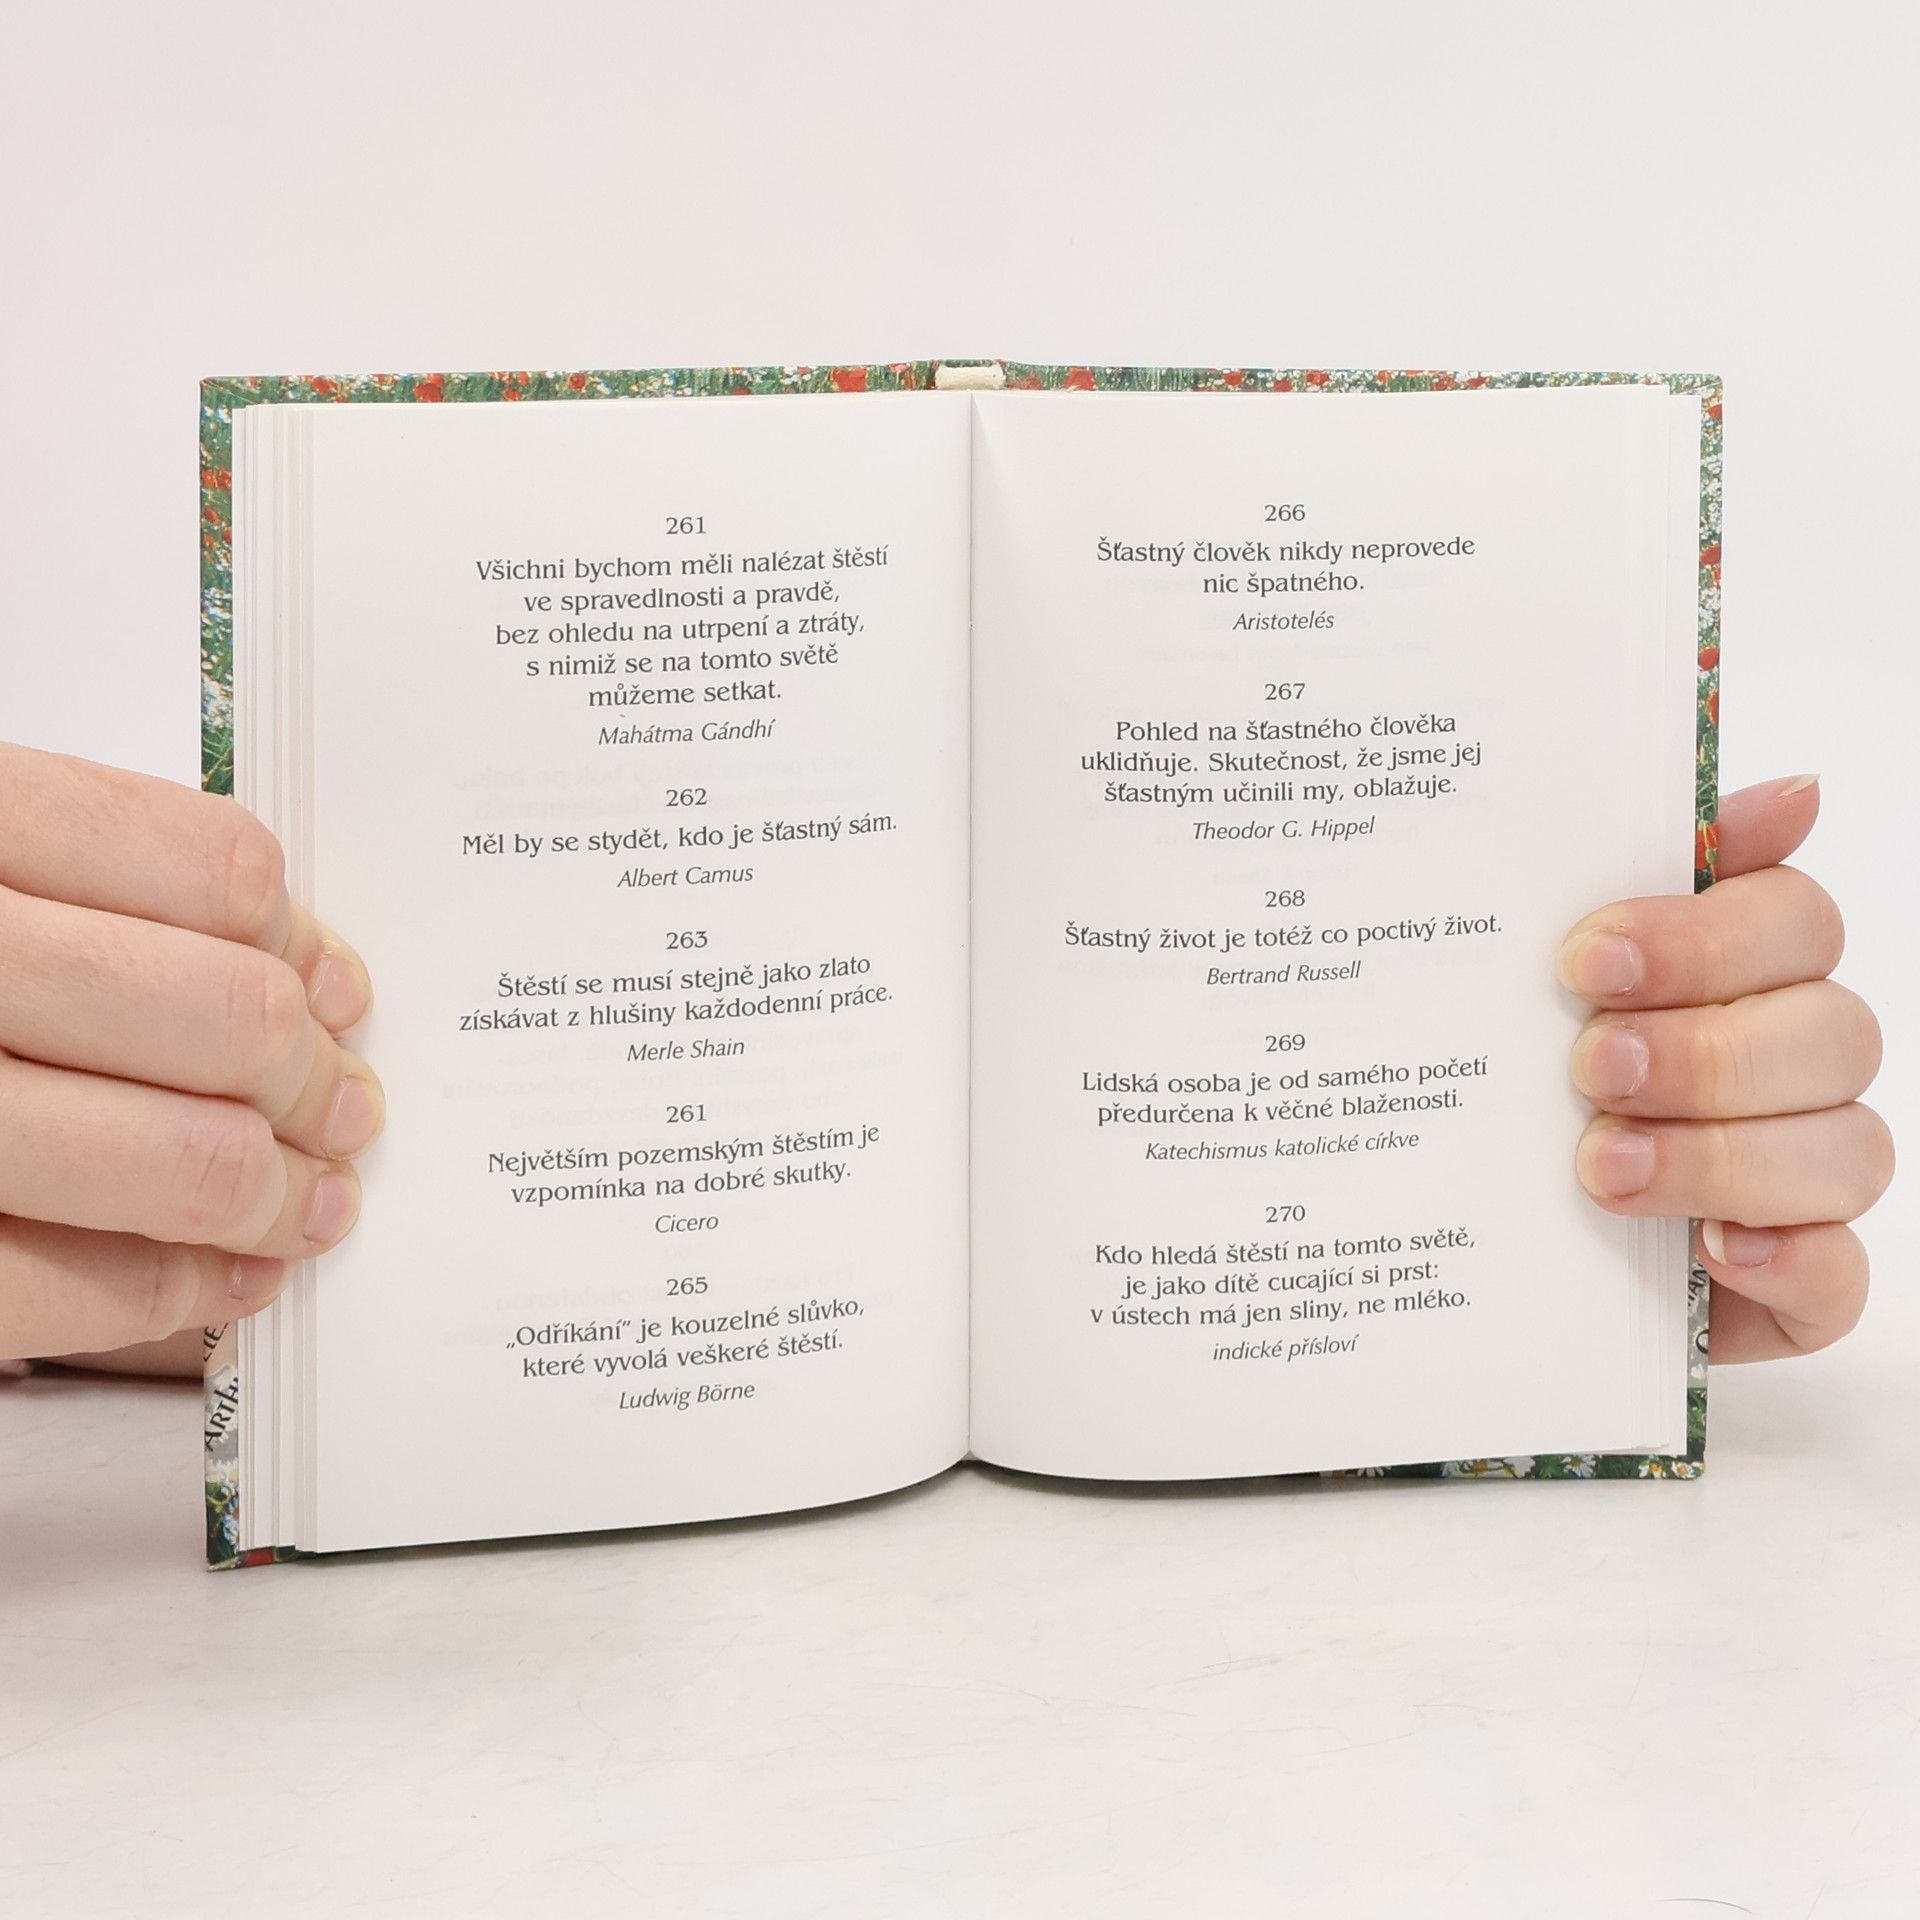 261
Všichni bychom měli nalézat štěstí
ve spravedlnosti a pravdě,
bez ohledu na utrpení a ztráty,
s nimiž se na tomto světě
můžeme setkat.
Mahátma Gándhí
262
Měl by se stydět, kdo je šťastný sám.
Albert Camus
263
Štěstí se musí stejně jako zlato
získávat z hlušiny každodenní práce.
Merle Shain
261
Největším pozemským štěstím je
vzpomínka na dobré skutky.
Cicero
265
„Odříkání” je kouzelné slůvko,
které vyvolá veškeré štěstí.
Ludwig Börne
266
Šťastný člověk nikdy neprovede
nic špatného.
Aristotelés
267
Pohled na šťastného člověka
uklidňuje. Skutečnost, že jsme jej
šťastným učinili my, oblažuje.
Theodor G. Hippel
268
Šťastný život je totéž co poctivý život.
Bertrand Russell
269
Lidská osoba je od samého početí
předurčena k věčné blaženosti.
Katechismus katolické církve
270
Kdo hledá štěstí na tomto světě,
je jako dítě cucající si prst:
v ústech má jen sliny, ne mléko.
indické přísloví